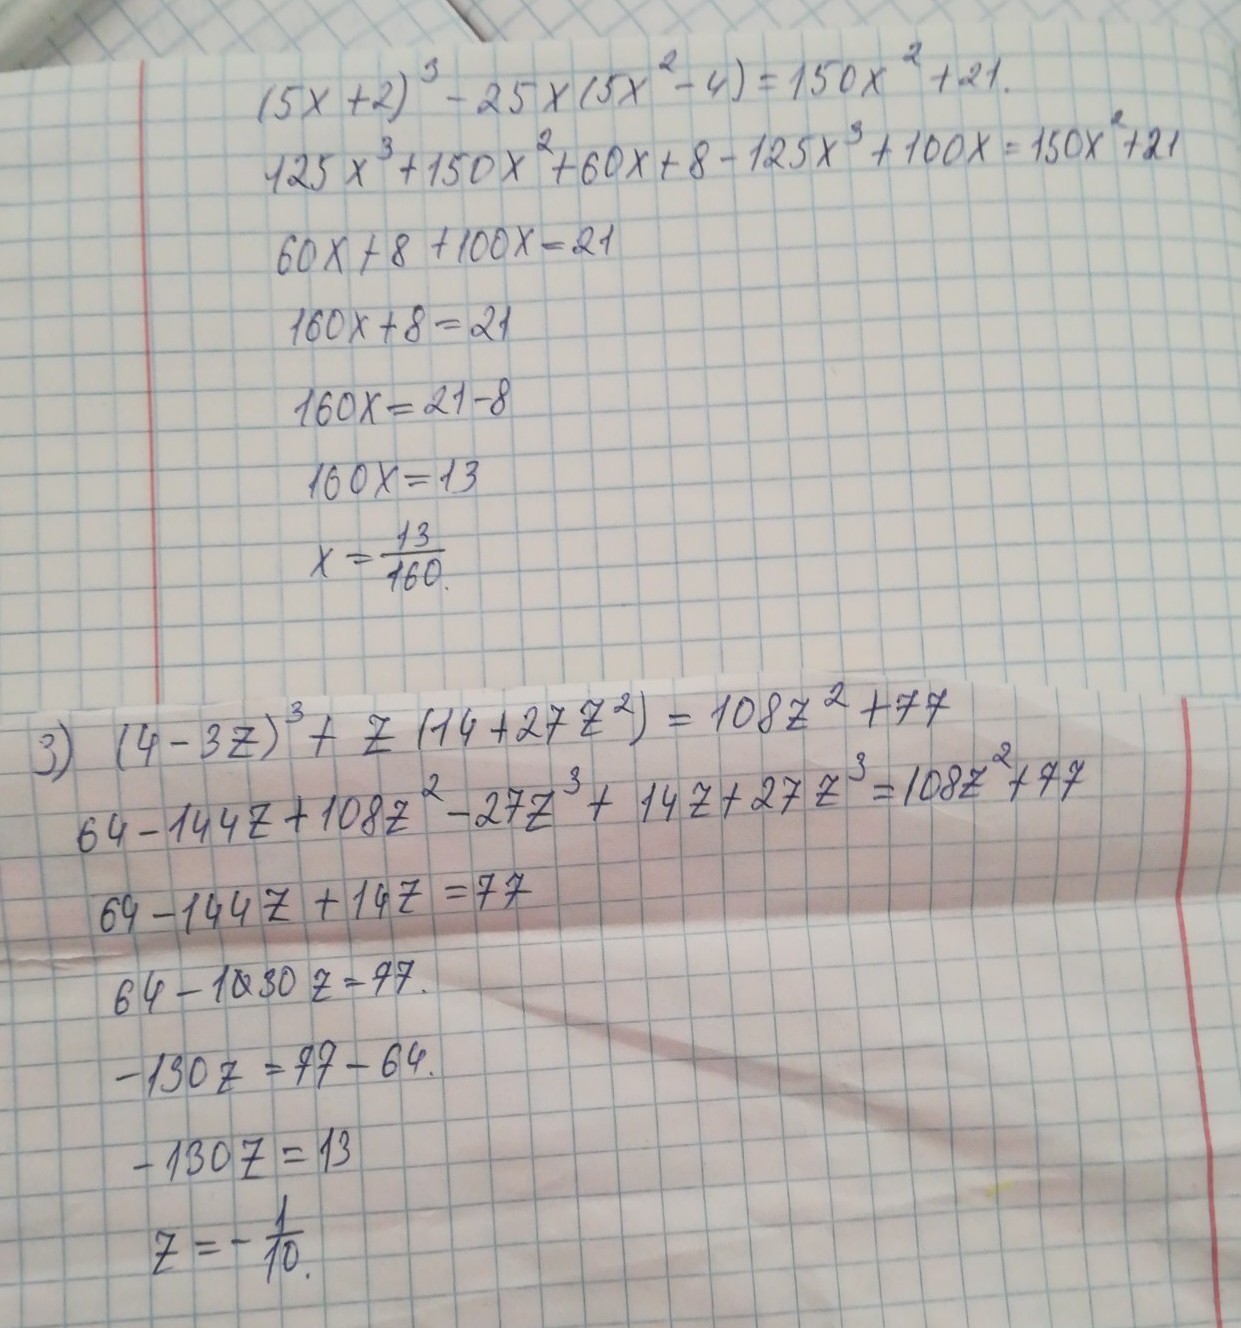 (5x+2)³-25x(5x²-4)=150x²+21.
125x³+150x²+60x+8-125x³+100x=150x²+21
60x+8+100x=21
160x+8=21
160x=21-8
160x=13
x=13/160.
3) (4-3z)³+z(14+27z²)=108z²+77
64-144z+108z²-27z³+14z+27z³=108z²+77
64-144z+14z=77
64-130z=77.
-130z=77-64.
-130z=13
z=-1/10.